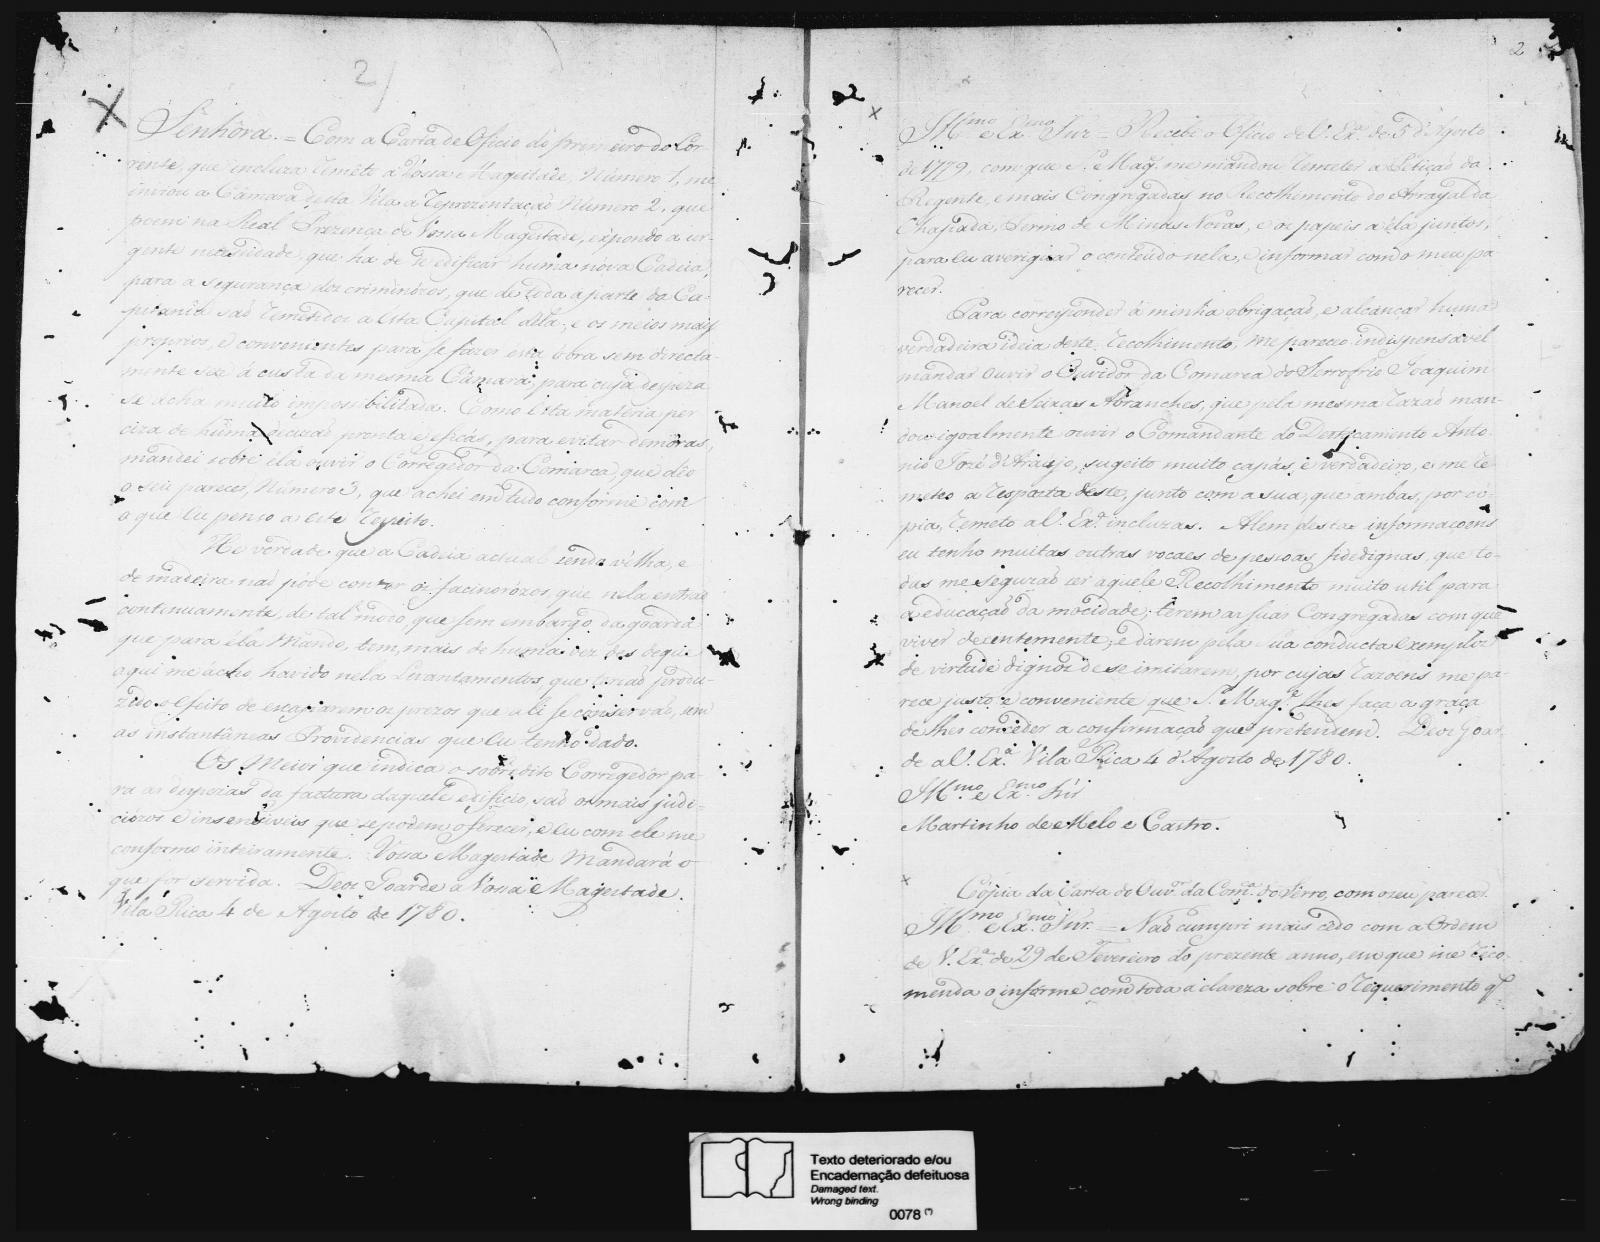 2
Senhora. = Com a Carta de Oficio do primeiro do Cor-
rente, que incluza remeto a Vossa Magestade, Número 1, me
inviou a Câmara desta Vila a reprezentaçaõ Número 2, que
poem na Real Prezença de Vossa Magestade, expondo a ur-
gente necesidade, que ha de se edificar huma nóva Cadeia,
para a segurança dos criminózos, que de toda a parte da Ca-
pitania saõ remetidos a esta Capital dela; e os meios mais
proprios, e convenientes para se fazer esta óbra sem directa-
mente ser á custa da mesma Câmara; para cuja despeza
se acha muito imposibilitada. Como esta matéria per
ciza de hûma decizaõ pronta e eficás, para evitar demóras,
mandei sobre ela ouvir o Corregedor da Comarca, que deo
o seu parecer, Número 3, que achei em tudo confórme com
o que Eu penso a este respeito.
He verdade que a Cadeia actual sendo vélha, e
de madeira naõ póde conter os facinorózos, que nela entraõ
continuamente, de tal módo, que sem embargo da goarda
que para éla mando, tem, mais de huma vez des deque
aqui me ácho havido nela Levantamentos, que teriaõ produ-
zido o efeito de escaparem os prezos que ali se conservaõ, sem
as instantâneas Providencias que Eu tenho dado.
Os Meios que indica o sobredito Corregedor pa-
ra as despezas da factura daquele edificio, saõ os mais judi-
ciózos e insensiveis que se podem oferecer, e Eu com ele me
conformo inteiramente. Vossa Magestade Mandará o
que for servida. Deos Goarde a Vossa Magestade.
Vila Rica 4 de Agosto de 1780.
2
Ill.mo e Ex.mo Snr = Recebi o Oficio de V. Ex.a de 5 d'Agosto
de 1779, com que S. Mag.e me mandou remeter a Petiçaõ da
Regente, e mais Congregadas no Recolhimento do Arrayal da
Chapada, Termo de Minas Novas, e os papeis a éla juntos,
para Eu averiguar o conteúdo nela, e informar com o meu pa-
recer.
Para corresponder á minha obrigaçaõ, e alcançar huma
verdadeira idéia deste recolhimento, me pareceo indispensavel
mandar ouvir o Ouvidor da Comarca do Serrofrio Joaquim
Manoel de Seixas Abranches, que pela mesma razaõ man-
dou igoalmente ouvir o Comandante do Destacamento Anto-
nio Jozé d'Araujo, sugeito muito capás, e verdadeiro, e me re-
meteo a resposta deste, junto com a sua, que ambas, por có-
pia, remeto a V. Ex.a incluzas. Alem destas informaçoens
eu tenho muitas outras vocaes de pesoas fidedignas, que to-
das me seguraõ ser aquele Recolhimento muito util para
a educaçaõ da mocidade; terem as suas Congregadas com que
viver decentemente; e darem pela sua conducta exemplos
de virtude dignos de se imitarem, por cujas razoens me pa-
rece justo, e conveniente que S. Mag.e lhes faça a graça
de lhes conceder a confirmaçaõ que pretendem. Deos Goar
de a V. Ex.a Vila Rica 4 d'Agosto de 1780.
Ill.mo e Ex.mo Snr
Martinho de Melo e Castro.
Cópia da Carta do Ouv.or da Com.ca do Serro, com o seu parecer.
Ill.mo e Ex.mo Snr. = Naõ cumpri mais cêdo com a Ordem
de V. Ex.a de 29 de Fevereiro do prezente anno, em que me reco-
menda o informe com toda a clareza sobre o requerimento q.
Texto deteriorado e/ou
Encadernação defeituosa
Damaged text.
Wrong binding
0078 (*)